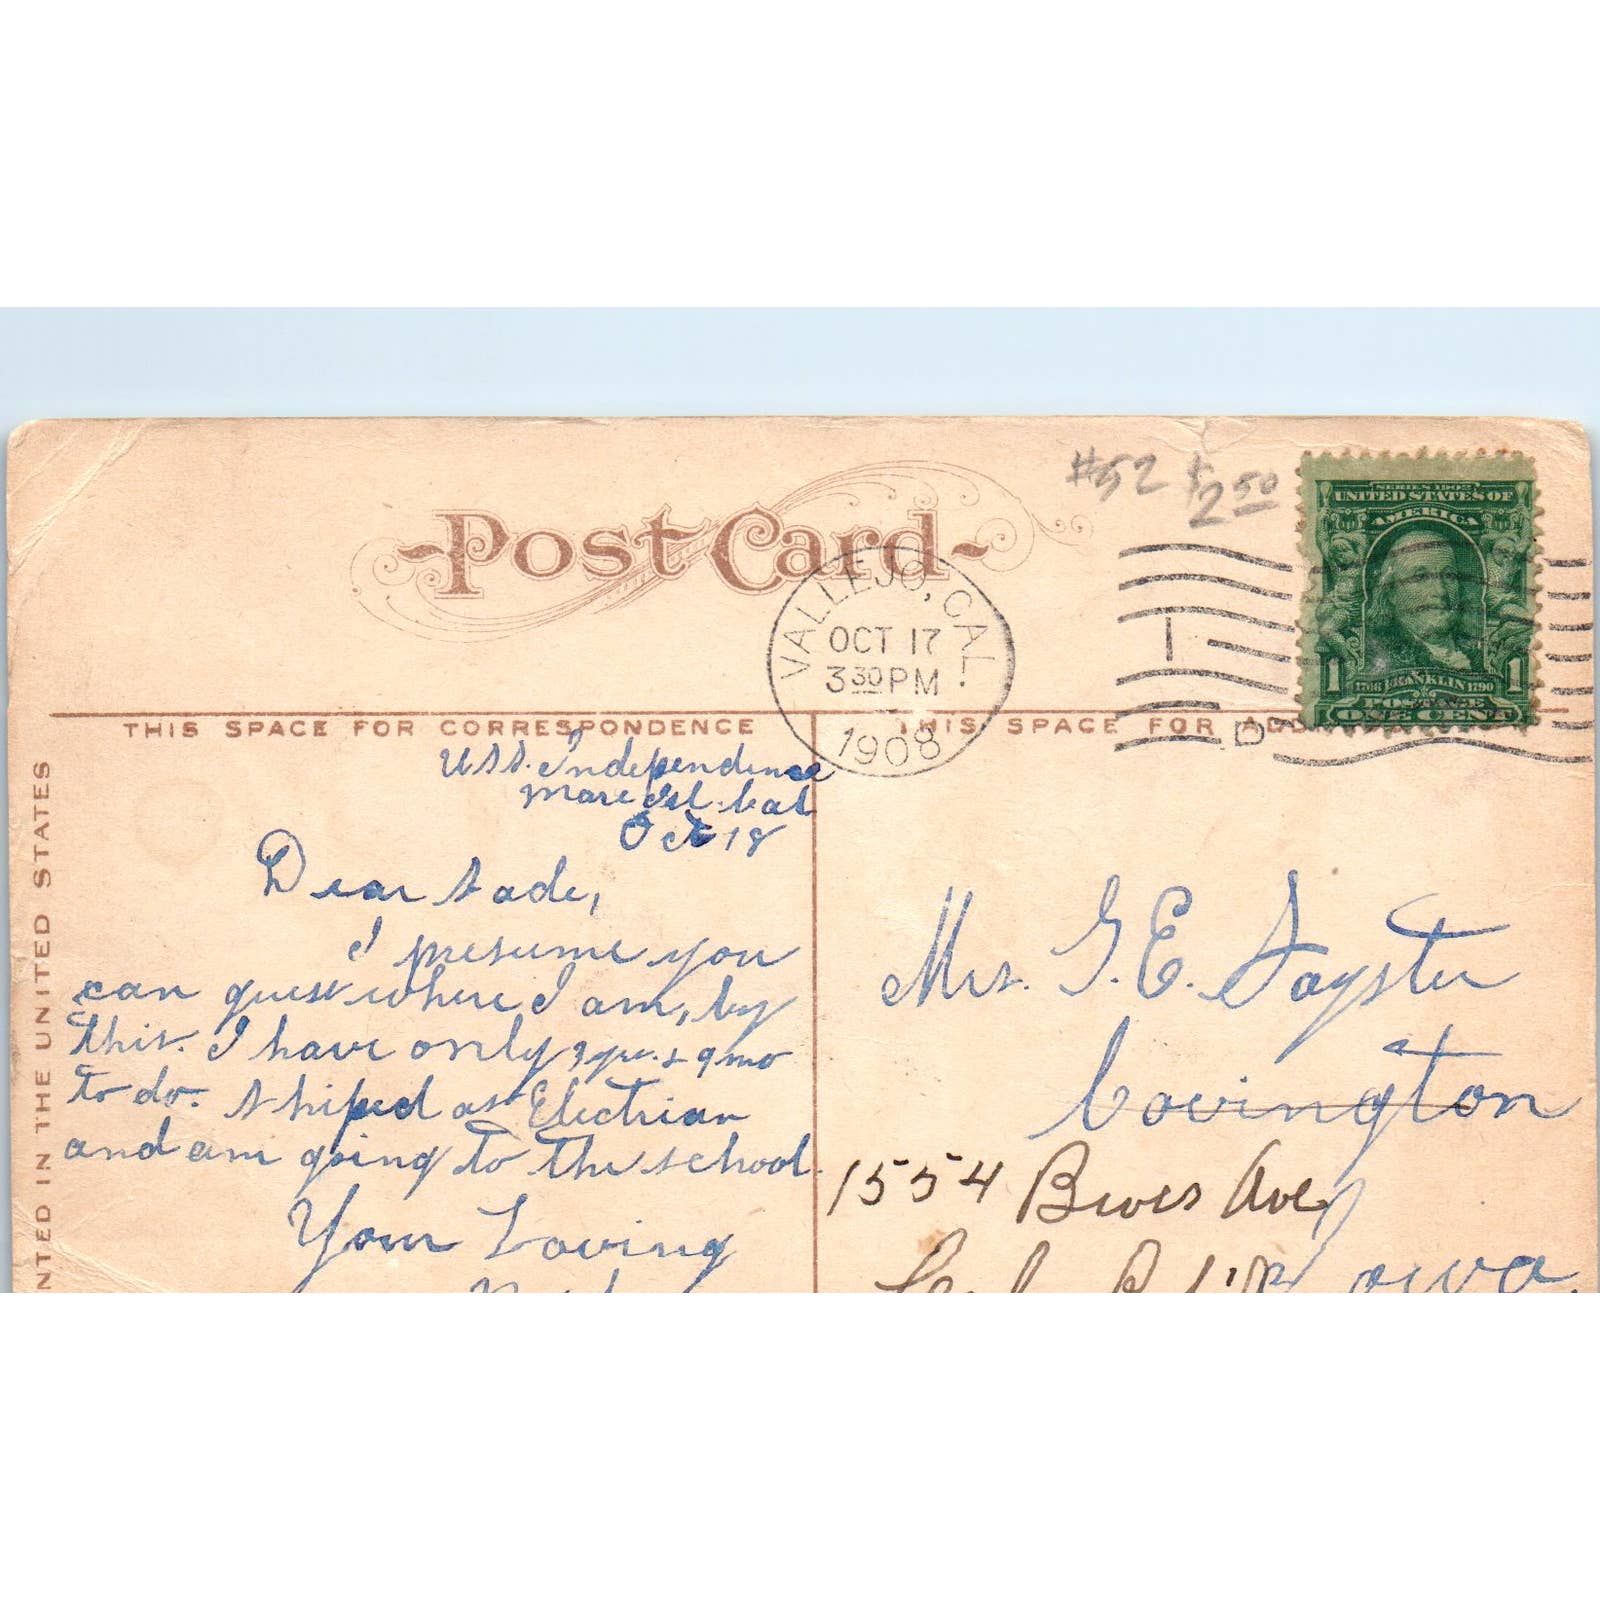 #52 $2.50
SERIES 1902
UNITED STATES OF
AMERICA
1 1706 FRANKLIN 1790 1
POSTAGE
ONE CENT
Post Card
VALLEJO, CAL.
OCT 17
3 30 PM
1908
1
D
THIS SPACE FOR CORRESPONDENCE
THIS SPACE FOR ADD
NTED IN THE UNITED STATES
U.S.S. Independence
Mare Isl. Cal
Oct 18
Dear Sade,
I presume you
can guess where I am, by
this. I have only 3 yrs. & 9 mo
to do. Shiped as Electrian
and am going to the school.
Your Loving
Mrs. G. E. Sayster
Covington
1554 Ave
Iowa.